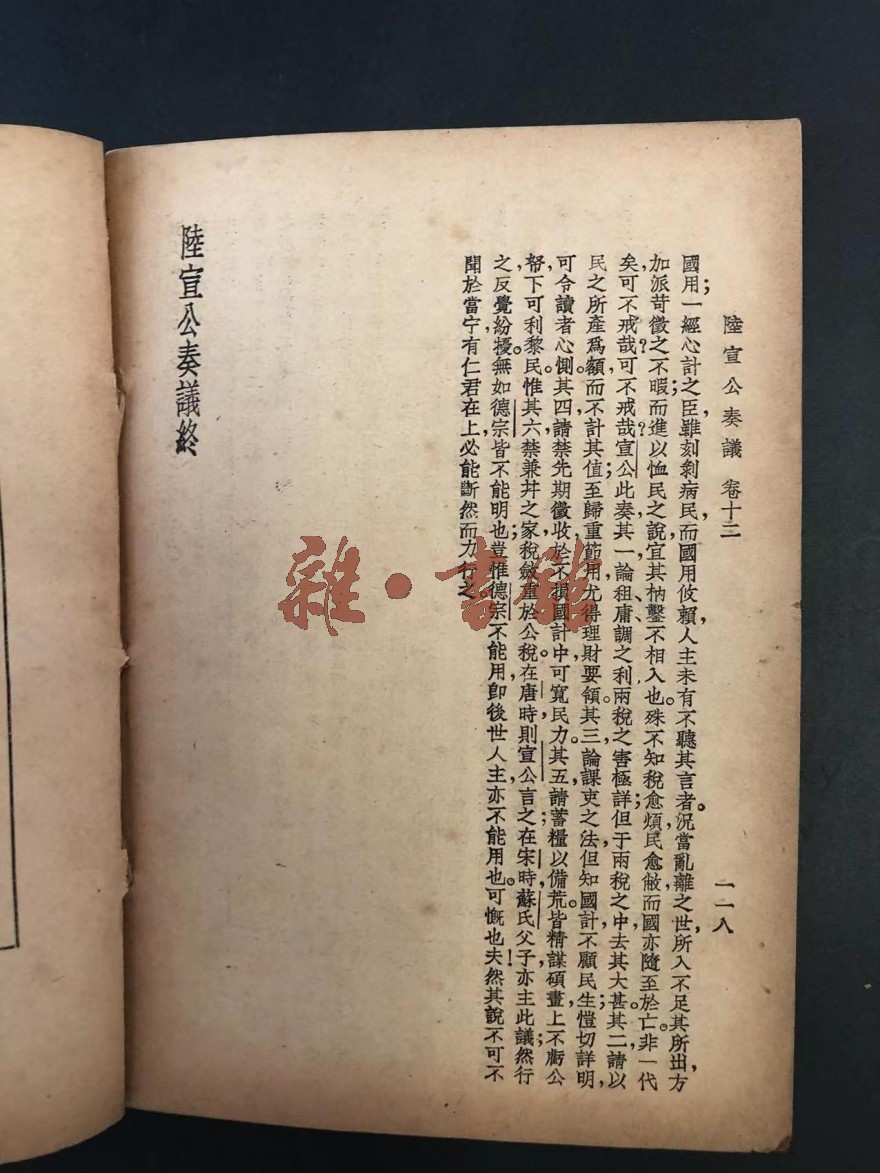 陸宣公奏議　卷十二
一一八
國用一經心計之臣，雖刻剝病民，而國用攸賴，人主未有不聽其言者。況當亂離之世，所入不足其所出，方
加派苛徵之不暇，而進以恤民之說，宜其枘鑿不相入也。殊不知稅愈煩，民愈敝，而國亦隨至於亡。非一代
矣，可不戒哉？可不戒哉？宣公此奏，其一論租、庸、調之利，兩稅之害極詳；但于兩稅之中，去其大甚。其二請以
民之所產爲額，而不計其值；至歸重節用，尤得理財要領。其三論課吏之法，但知國計，不顧民生；愷切詳明，
可令讀者心惻。其四請禁先期徵收，於不損國計中，可寬民力。其五請蓄糧以備荒。皆精謀碩畫，上不虧公
帑，下可利黎民。惟其六禁兼幷之家，稅斂重於公稅。在唐時，則宣公言之；在宋時，蘇氏父子亦主此議；然行
之反覺紛擾。無如德宗皆不能明也；豈惟德宗不能用，卽後世人主，亦不能用也。可慨也夫！然其說不可不
聞於當宁，有仁君在上，必能斷然而力行之。
陸宣公奏議終
雜·書館